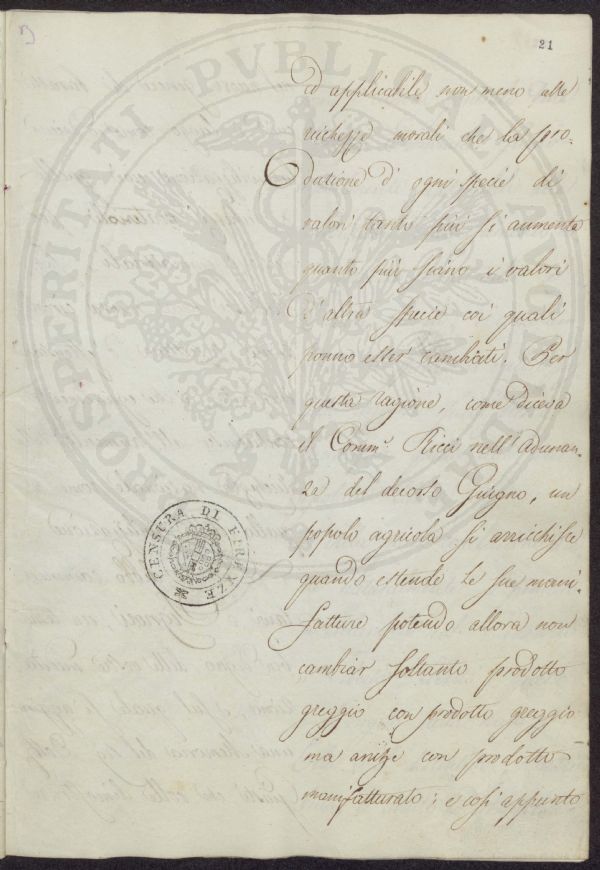 21
ed applicabile non meno alle
richezze morali che la pro-
duzione d' ogni specie di
valori tanto più si aumenta
quanto più siano i valori
d'altra specie coi quali
ponno esser cambiati. Per
questa ragione, come diceva
il Comm.e Ricci nell'Adunan-
za del decorso Giugno, un
popolo agricola si arricchisce
quando estende le sue mani-
fatture potendo allora non
cambiar soltanto prodotto
greggio con prodotto greggio
ma anche con prodotto
manifatturato; e così appunto
CENSURA DI FIRENZE
PROSPERITATI PVBLICAE AVGENDAE